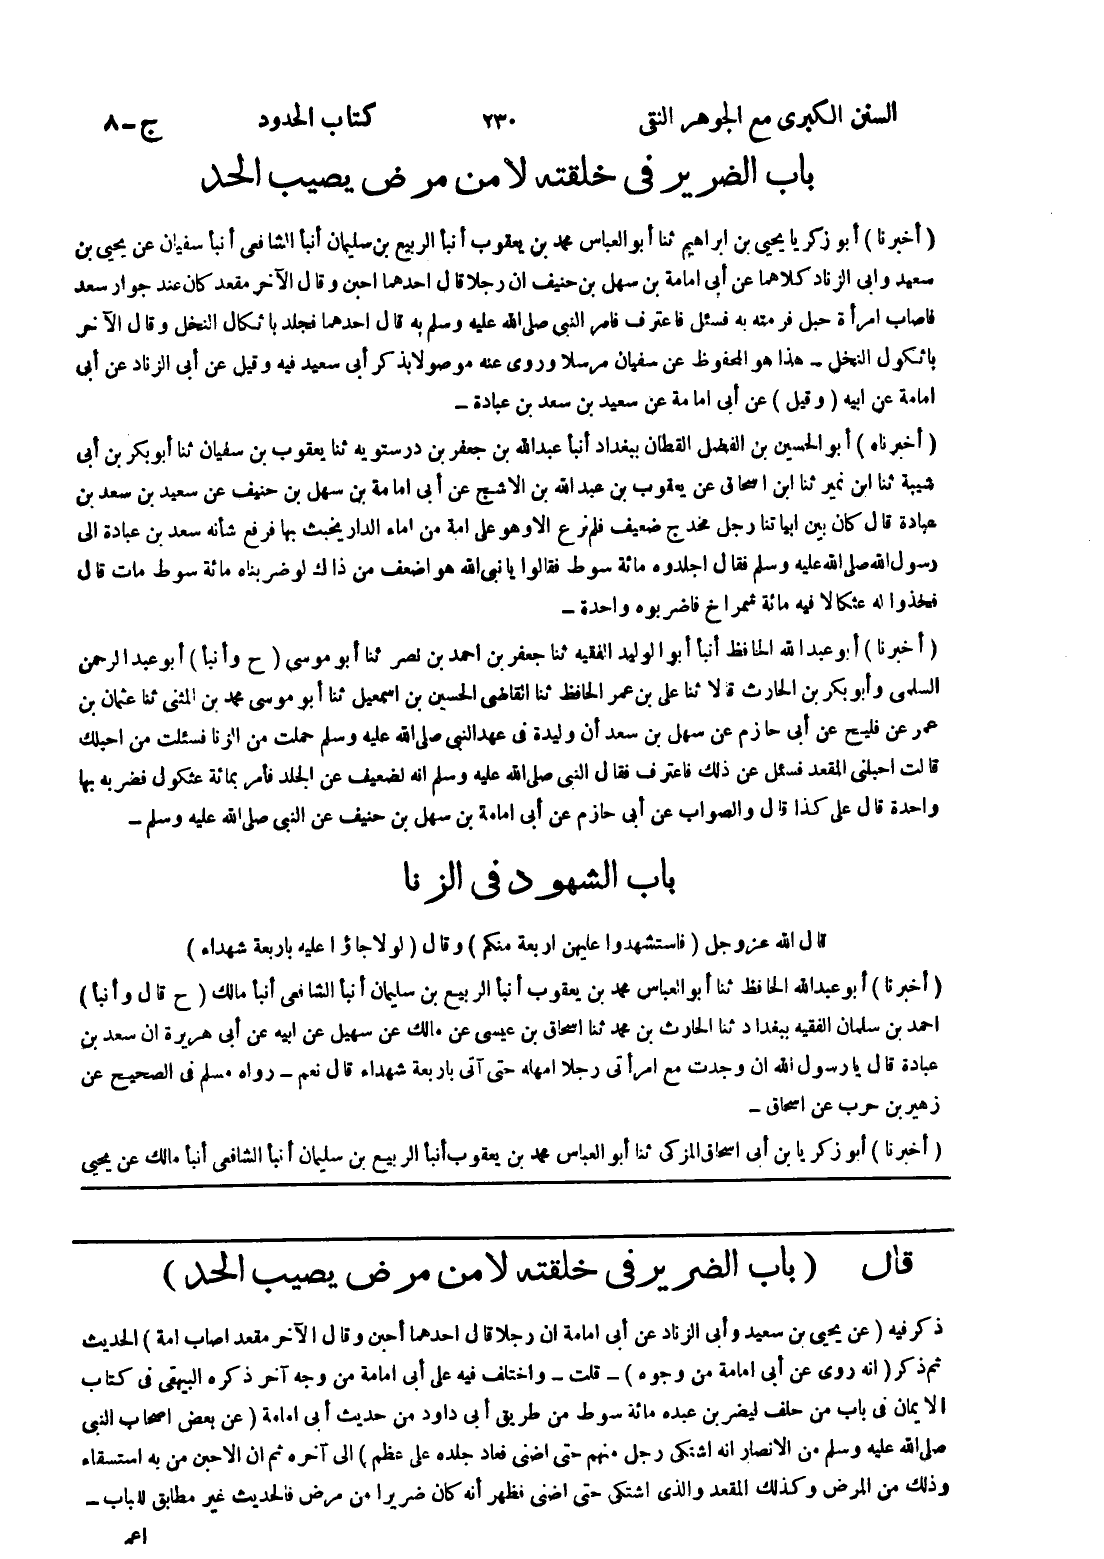 السنن الكبرى مع الجوهر النقى ٢٣٠ كتاب الحدود ج-٨
باب الضرير فى خلقته لا من مرض يصيب الحد
( أخبرنا ) أبو زكريا يحيى بن ابراهيم ثنا أبو العباس محمد بن يعقوب أنبأ الربيع بن سليمان أنبأ الشافعى أنبأ سفيان عن يحيى بن
سعيد وابى الزناد كلاهما عن أبى امامة بن سهل بن حنيف ان رجلا قال احدهما احبن وقال الآخر مقعد كان عند جوار سعد
فاصاب امرأة حبل فرمته به فسئل فاعترف فامر النبى صلى الله عليه وسلم به قال احدهما فجلد باثكال النخل وقال الآخر
باثكول النخل – هذا هو المحفوظ عن سفيان مرسلا وروى عنه موصولا بذكر أبى سعيد فيه وقيل عن أبى الزناد عن أبى
امامة عن ابيه ( وقيل ) عن أبى امامة عن سعيد بن سعد بن عبادة –
( أخبرناه ) أبو الحسين بن الفضل القطان ببغداد أنبأ عبدالله بن جعفر بن درستويه ثنا يعقوب بن سفيان ثنا أبو بكر بن أبى
شيبة ثنا ابن نمير ثنا ابن اسحاق عن يعقوب بن عبد الله بن الاشج عن أبى امامة بن سهل بن حنيف عن سعيد بن سعد بن
عبادة قال كان بين ابياتنا رجل مخدج ضعيف فلم نرع الا وهو على امة من اماء الدار يخبث بها فرفع شأنه سعد بن عبادة الى
رسول الله صلى الله عليه وسلم فقال اجلدوه مائة سوط فقالوا يا نبى الله هو اضعف من ذاك لو ضربناه مائة سوط مات قال
فخذوا له عثكالا فيه مائة شمراخ فاضربوه واحدة –
( أخبرنا ) أبو عبد الله الحافظ أنبأ أبو الوليد الفقيه ثنا جعفر بن احمد بن نصر ثنا أبو موسى ( ح وأنبأ ) أبو عبد الرحمن
السلمى وأبو بكر بن الحارث قالا ثنا على بن عمر الحافظ ثنا القاضى الحسين بن اسمعيل ثنا أبو موسى محمد بن المثنى ثنا عثمان بن
عمر عن فليح عن أبى حازم عن سهل بن سعد أن وليدة فى عهد النبى صلى الله عليه وسلم حملت من الزنا فسئلت من احبلك
قالت احبلنى المقعد فسئل عن ذلك فاعترف فقال النبى صلى الله عليه وسلم انه لضعيف عن الجلد فأمر بمائة عثكول فضربه بها
واحدة قال على كذا قال والصواب عن أبى حازم عن أبى امامة بن سهل بن حنيف عن النبى صلى الله عليه وسلم –
باب الشهود فى الزنا
قال الله عز وجل ( فاستشهدوا عليهن اربعة منكم ) وقال ( لولا جاؤا عليه باربعة شهداء )
( أخبرنا ) أبو عبدالله الحافظ ثنا أبو العباس محمد بن يعقوب أنبأ الربيع بن سليمان أنبأ الشافعى أنبأ مالك ( ح قال وأنبأ )
احمد بن سلمان الفقيه ببغداد ثنا الحارث بن محمد ثنا اسحاق بن عيسى عن مالك عن سهيل عن ابيه عن أبى هريرة ان سعد بن
عبادة قال يا رسول الله ان وجدت مع امرأتى رجلا امهله حتى آتى باربعة شهداء قال نعم – رواه مسلم فى الصحيح عن
زهير بن حرب عن اسحاق –
( أخبرنا ) أبو زكريا بن أبى اسحاق المزكى ثنا أبو العباس محمد بن يعقوب أنبأ الربيع بن سليمان أنبأ الشافعى أنبأ مالك عن يحيى
قال ( باب الضرير فى خلقته لا من مرض يصيب الحد )
ذكر فيه ( عن يحيى بن سعيد وأبى الزناد عن أبى امامة ان رجلا قال احدهما أحبن وقال الآخر مقعد اصاب امة ) الحديث
ثم ذكر ( انه روى عن أبى امامة من وجوه ) – قلت – واختلف فيه على أبى امامة من وجه آخر ذكره البيهقى فى كتاب
الايمان فى باب من حلف ليضربن عبده مائة سوط من طريق أبى داود من حديث أبى امامة ( عن بعض اصحاب النبى
صلى الله عليه وسلم من الانصار انه اشتكى رجل منهم حتى اضنى فعاد جلده على عظم ) الى آخره ثم ان الاحبن من به استسقاء
وذلك من المرض وكذلك المقعد والذى اشتكى حتى اضنى فظهر أنه كان ضريرا من مرض فالحديث غير مطابق للباب –
اعد